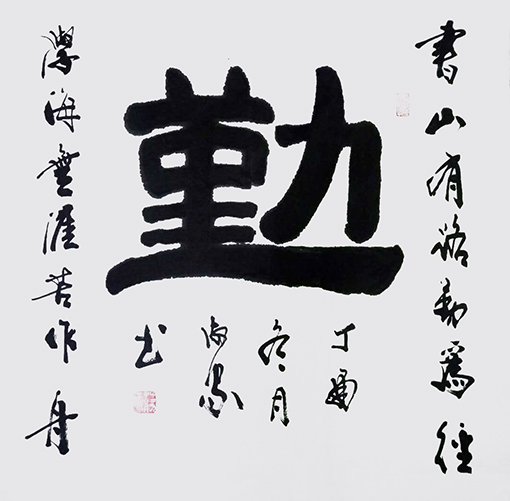 書山有路勤爲徑
勤
學海無涯苦作舟
丁酉
冬月
书